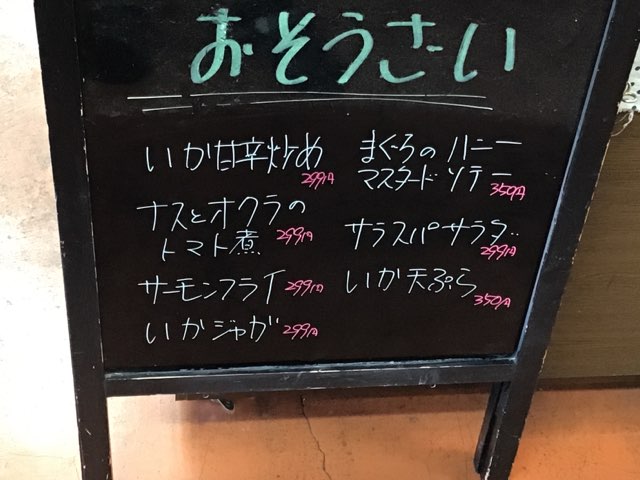 おそうざい
いか甘辛炒め
299円
ナスとオクラの
トマト煮
299円
サーモンフライ 299円
いかジャガ 299円
まぐろのハニー
マスタードソテー
350円
サラスパサラダ
299円
いか天ぷら
350円